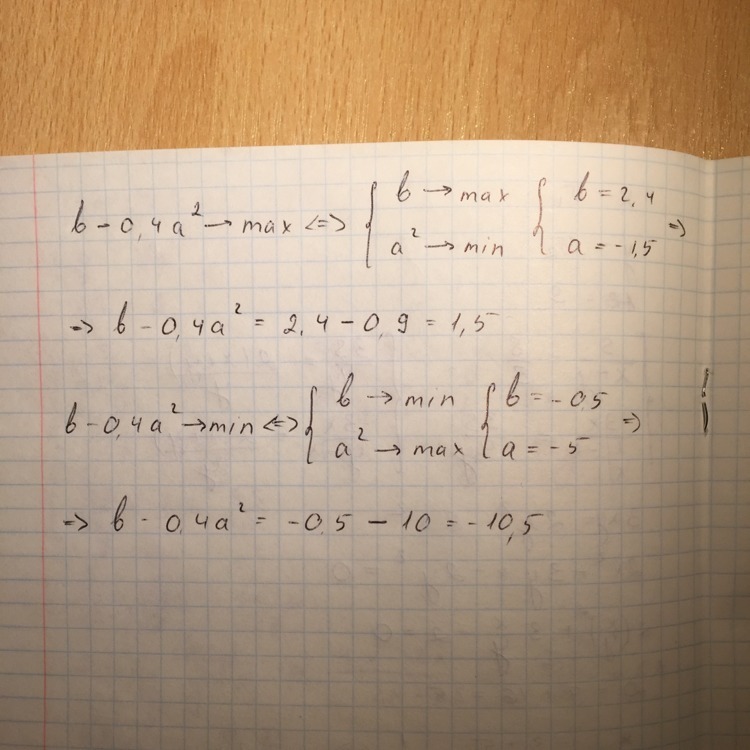 b - 0,4a² → max <=> { b → max { b = 2,4
a² → min a = -1,5 =>
=> b - 0,4a² = 2,4 - 0,9 = 1,5
b - 0,4a² → min <=> { b → min { b = -0,5 =>
a² → max a = -5
=> b - 0,4a² = -0,5 - 10 = -10,5